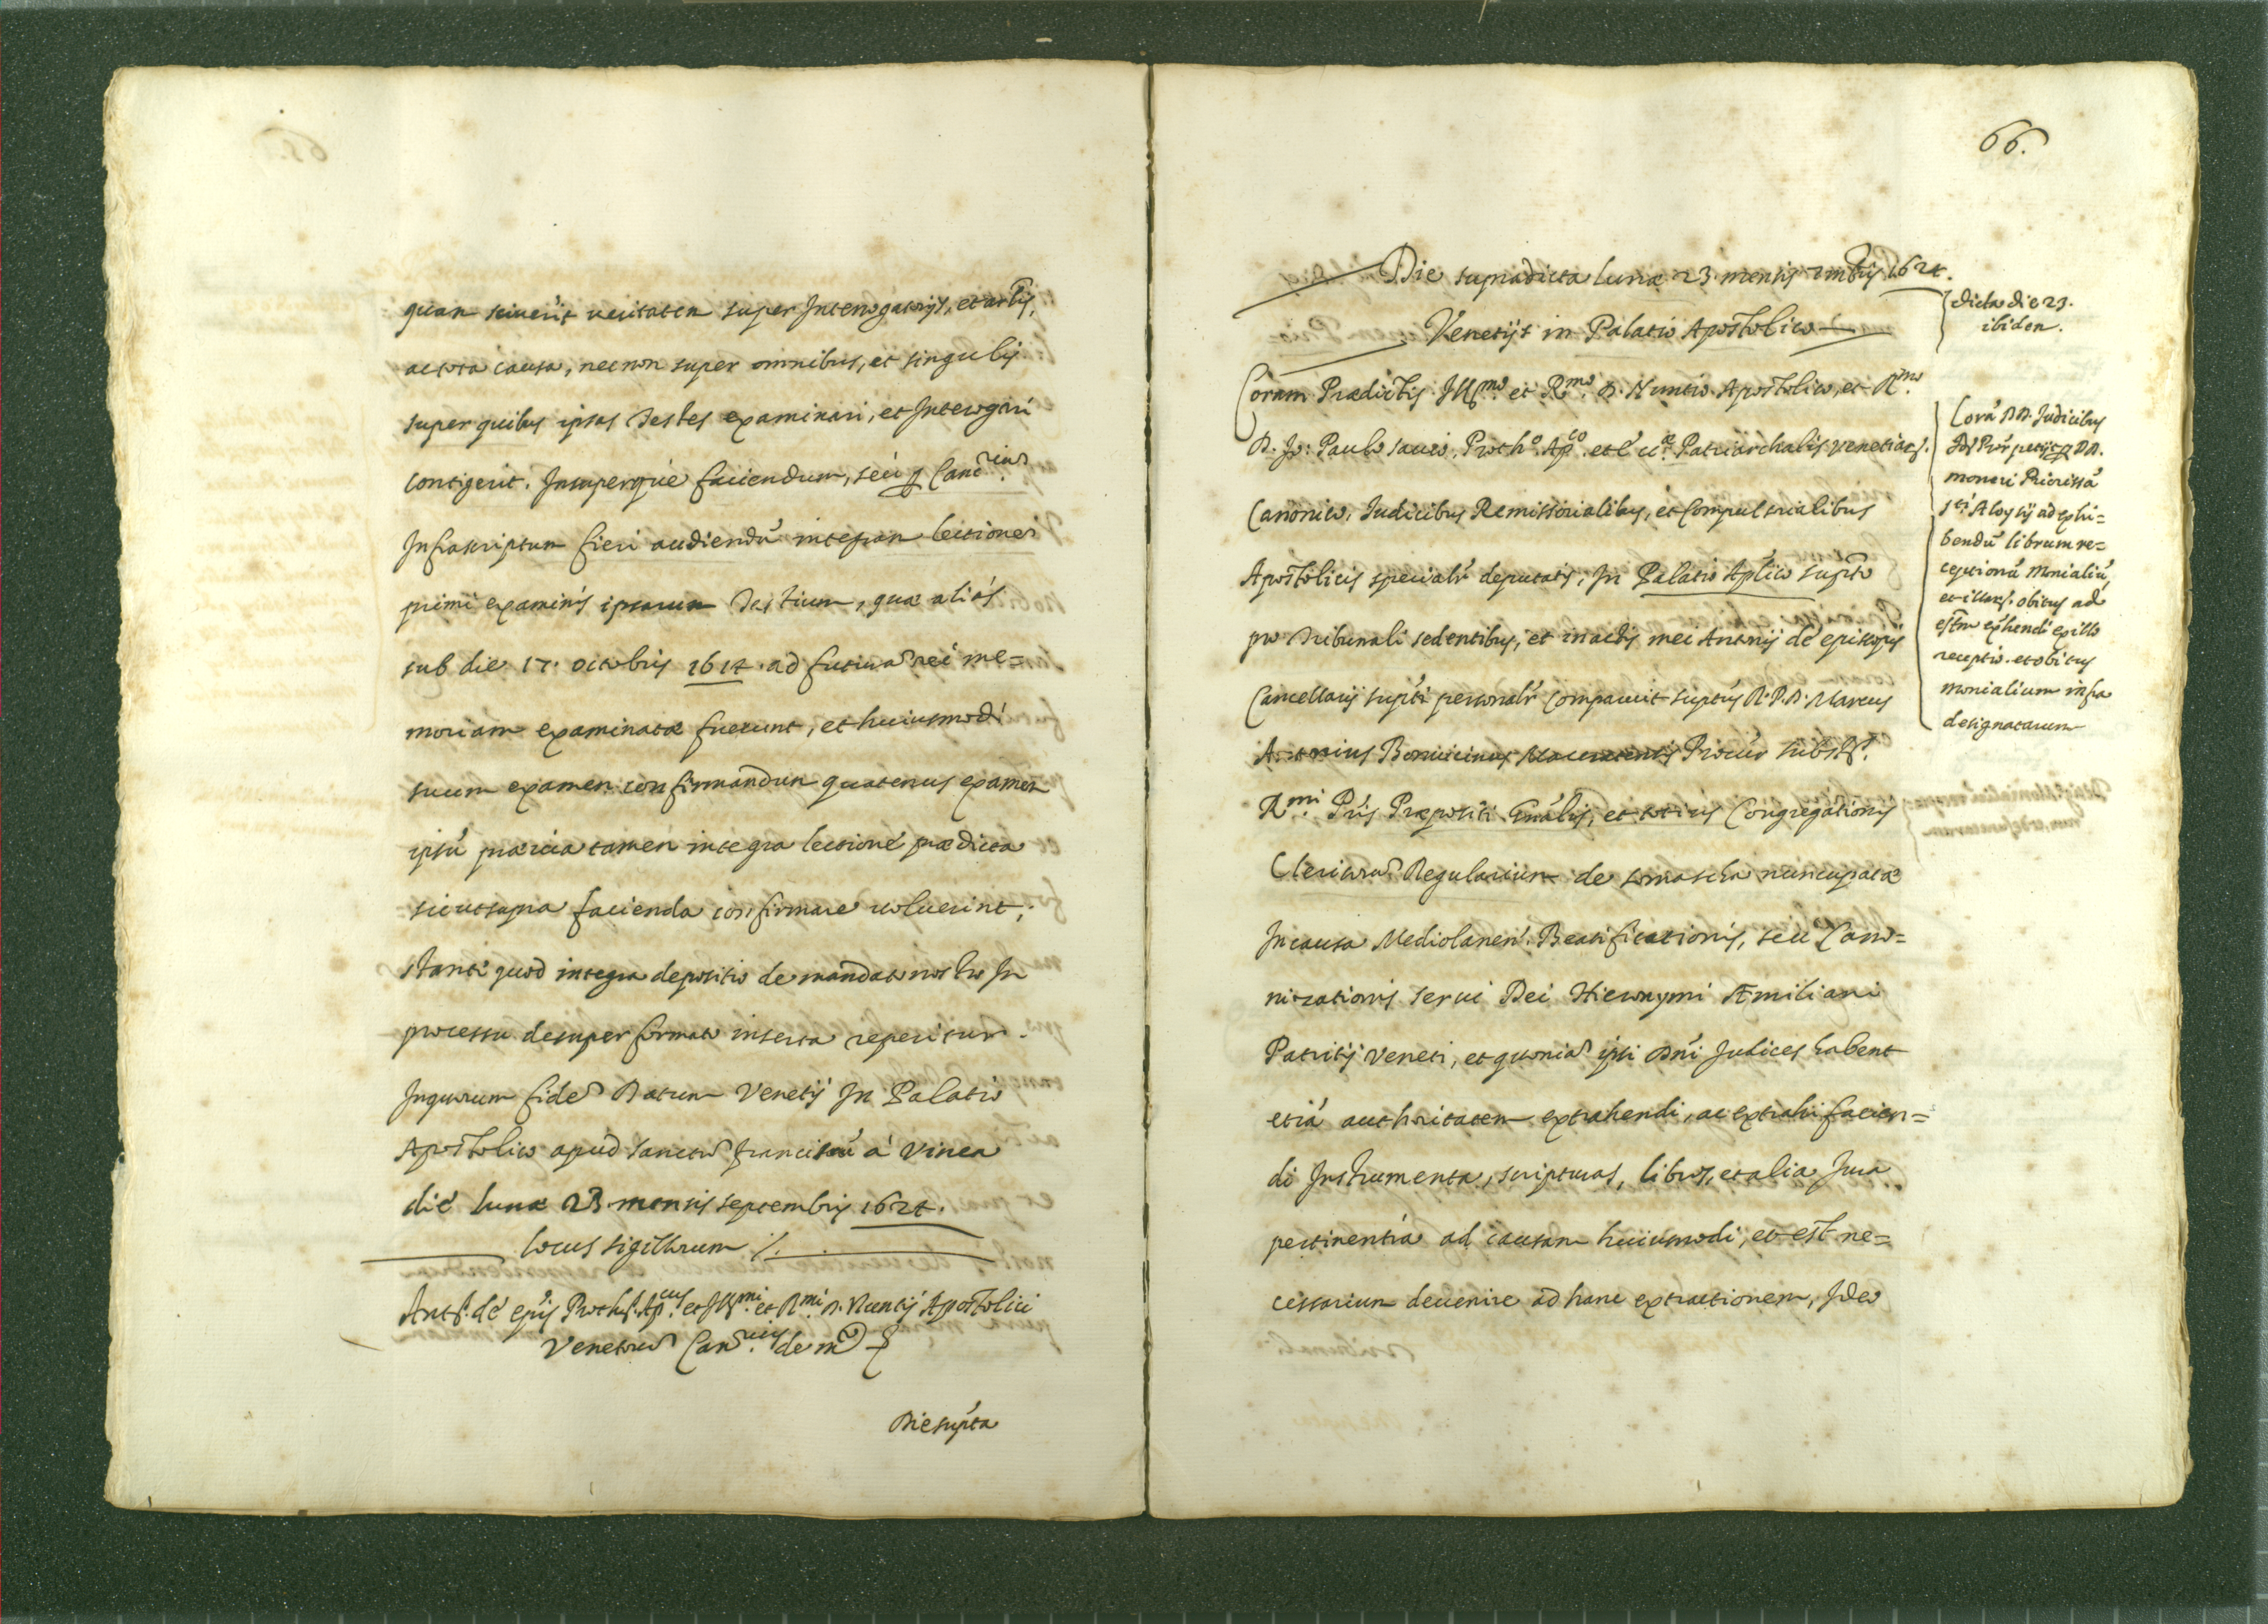 quam sciuerit ueritatem super Interrogatorijs, et artis,
ac tota causa, nec non super omnibus, et singulis
super quibus ipsos Testes examinari, et Interogari
contigerit. Insuperque faciendum, seù Canc.rium
Infrascriptum fieri audiendũ integram lectionem
primi examinis ipsorum Testium, quæ aliàs
sub die 17. octobris 1614. ad futura rei me=
moriam examinata fuerunt, et huiusmodi
suum examen confirmandum quatenus examen
ipsũ præuia tamen integra lectione prædicta
sicut supra facienda confirmare uoluerint,
stante quod integra depositio de mandato nostro In
processu desuper formato inserta reperitur.
In quorum fidem Datum Venetijs In Palatio
Apostolico apud Sanctum franciscũ à Vinea
die lunæ 23 mensis septembris 1624.
locus sigillorum %.
Ant.s de ep̃is Proth.s Ap.cus et Ill.mi et R.mi D. Nuntij Apostolici
Venetiarum Can.rius de m.to
Die supta
66.
Die supradicta lunæ 23 mensis 7mbris 1624.
Venetijs in Palatio Apostolico
Coram Prædictis Ill.mo et R.mo D. Nuntio Apostolico, et R.mo
D. Jo: Paulo Sauio, Proth.o Ap.co et Patriarchalis Venetiar.
Canonico, Iudicibus Remissorialibus, et Compulsorialibus
Apostolicis specialr̃ deputatis, In Palatio Aplico supto
pro Tribunali sedentibus, et in actis mei Antonij de episcopis
Cancellarij supti personalr̃ comparuit suptus R. P. D. Marcus
Antonius Procur subst.s
R.mi P̃ris Præpositi Gñalis, et totius Congregationis
Clericorum Regularium de somascha nuncupatæ
In causa Mediolanen. Beatificationis, seu Cano=
nizationis serui Dei Hieronymi Æmiliani
Patritij Veneti, et quoniam ipsi Dñi Judices habent
etiã authoritatem extrahendi, ac extrahi facien=
di Instrumenta, scripturas, libros, et alia Jura
pertinentia ad causam huiusmodi, et est ne=
cessarium deuenire ad hanc extractionem, Ideo
dicta die 23.
ibidem.
Corã DD. Judicibus
moneri Priorissã
S.ti Aloysij ad exhi=
bendũ librum re=
ceptionũ Monialiũ,
et illar. obitus ad
receptio. et obitus
monialium infra
designatarum